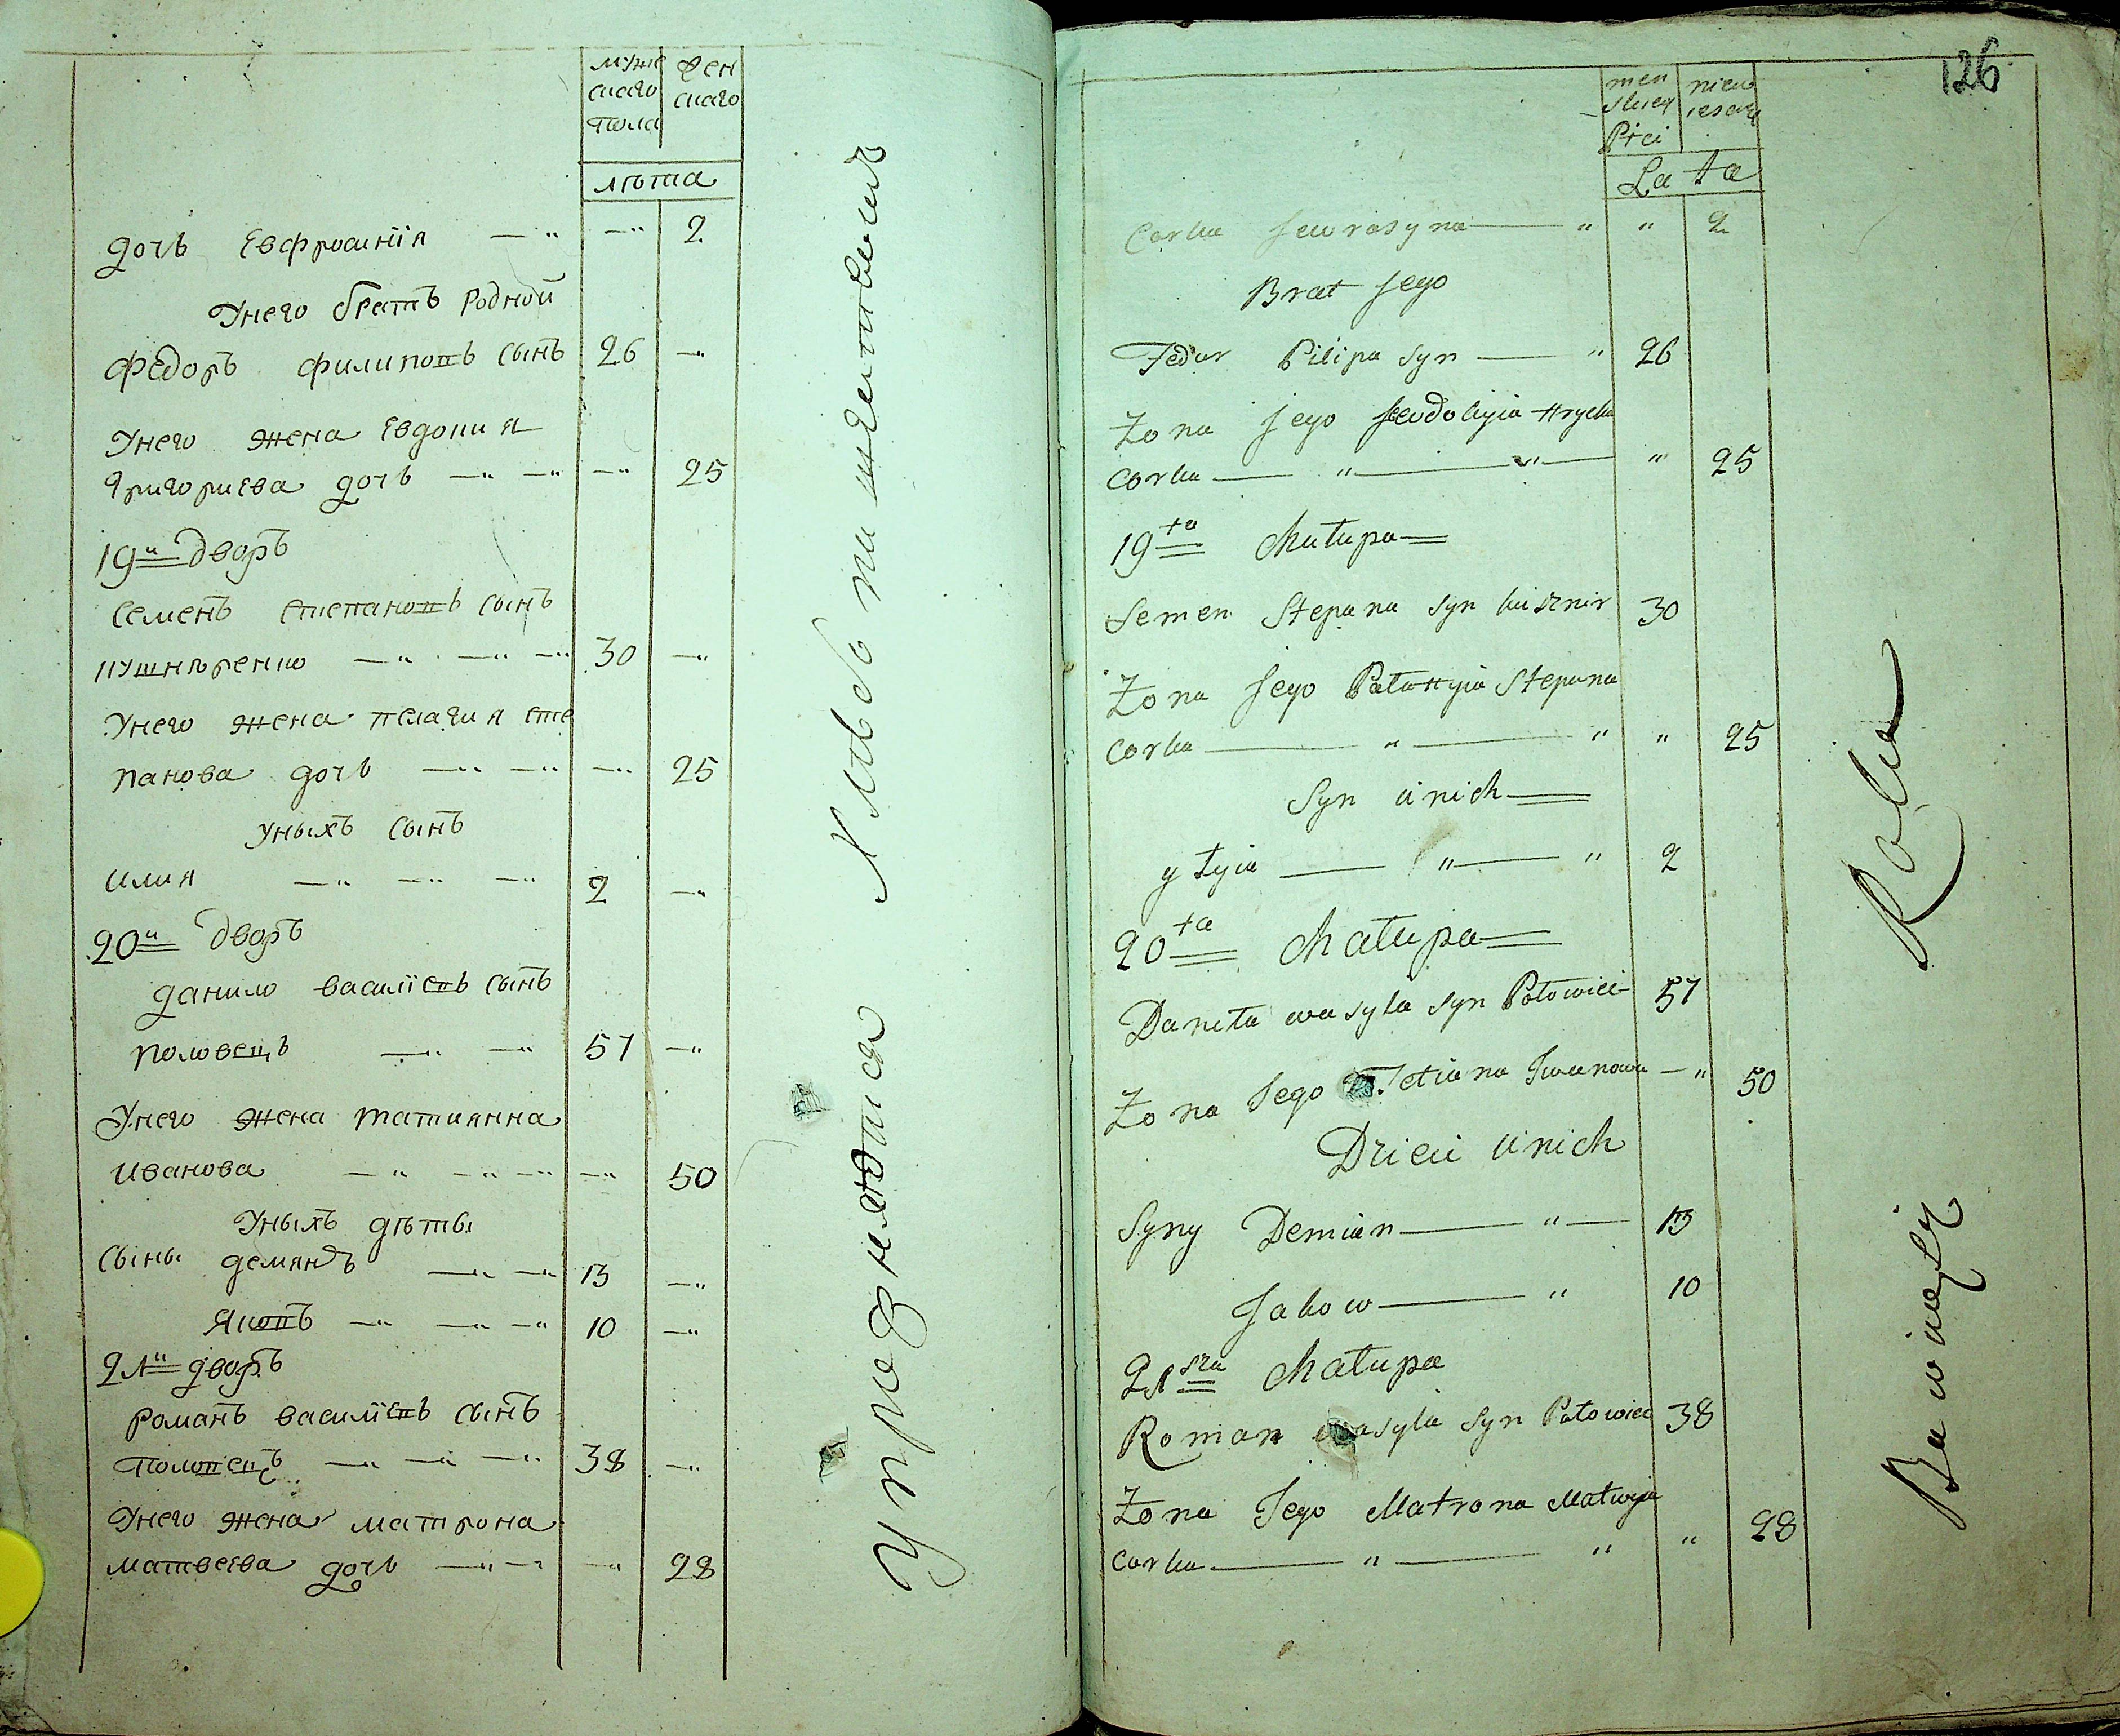 муже
скаго
пола
жен
скаго
лѣта
дочь Евфросинїя — " — " 2
Унего братъ Родной
Федоръ филиповъ сынъ 26 — "
Унего жена Евдокия
Григориева дочь — " — " — " 25
19й дворъ
Семенъ степановъ сынъ
кушнѣренко — " — " — " 30 — "
Унего жена пелагия сте
панова дочь — " — " — " 25
Уныхъ сынъ
илия — " — " — " 2 — "
20й дворъ
данило василїевъ сынъ
половецъ — " — " 57 — "
Унего жена татиянна
Иванова — " — " — " — " 50
Уныхъ дѣты
Сыны демянъ — " — " 13 — "
Яковъ — " — " — " 10 — "
21й дворъ
романъ василїевъ сынъ
половецъ — " — " — " 38 — "
Унего жена матрона
матвеева дочь — " — " — " 28
126
men
skiey
Płci
niew
iesciey
Lata
Corka Jewrosyna — " " 2
Brat Jego
Fedor Pilipa Syn — " 26
Żona Jego Jewdokyia Hryćka
Corka — " — " — " 25
19ta Chałupa
Semen Stepana Syn kusznir 30
Żona Jego Pałahyia Stepana
Corka — " — " " 25
Syn u nich
yłyia — " — " 2
20ta Chałupa
Daniła wasyla Syn Połowiec 57
Żona Jego Tetiana Iwanowa — " 50
Dzieci u nich
Syny Demian — " — 13
Jakow — " 10
21sza Chałupa
Roman wasyla Syn Połowiec 38
Żona Jego Matrona Matwyia
Corka — " — " " 28